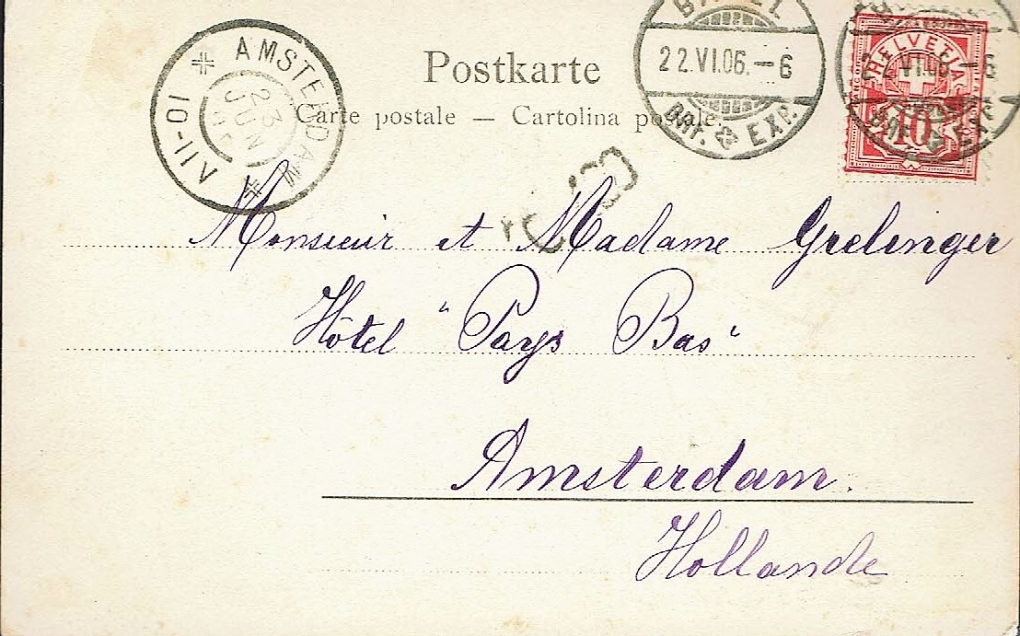 AMSTERDAM
10-11V
23
JUN
Postkarte
Carte postale — Cartolina postale.
BASEL
22.VI.06.-6
BRF. EXP.
22.VI.06.-6
BRF. EXP.
HELVETIA
10
Monsieur et Madame Grelinger
Hôtel "Pays Bas"
Amsterdam.
Hollande